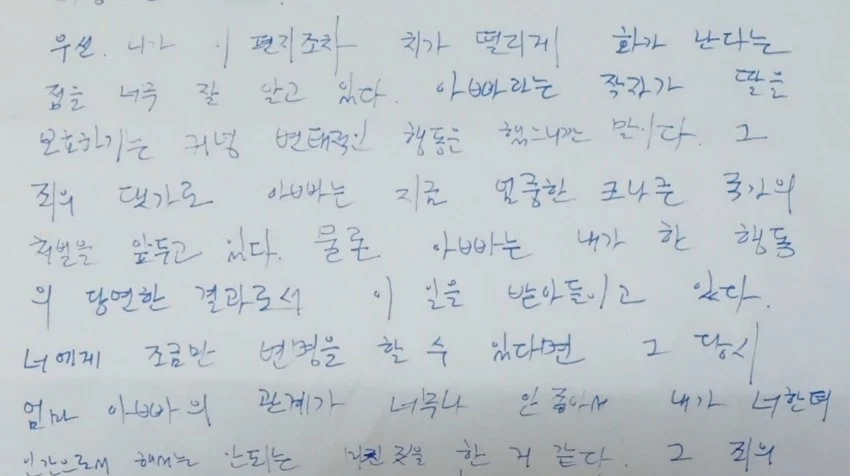 우선. 니가 이 편지조차 치가 떨리게 화가 난다는
점을 너무 잘 알고 있다. 아빠라는 작자가 딸을
보호하기는 커녕 변태적인 행동을 했으니깐 말이다. 그
죄의 댓가로 아빠는 지금 엄중한 크나큰 국가의
처벌을 앞두고 있다. 물론 아빠는 내가 한 행동
의 당연한 결과로서 이 일을 받아들이고 있다.
너에게 조금만 변명을 할 수 있다면 그 당시
엄마 아빠의 관계가 너무나 안 좋아서 내가 너한테
인간으로서 해서는 안되는 미친 짓을 한 거 같다. 그 죄의